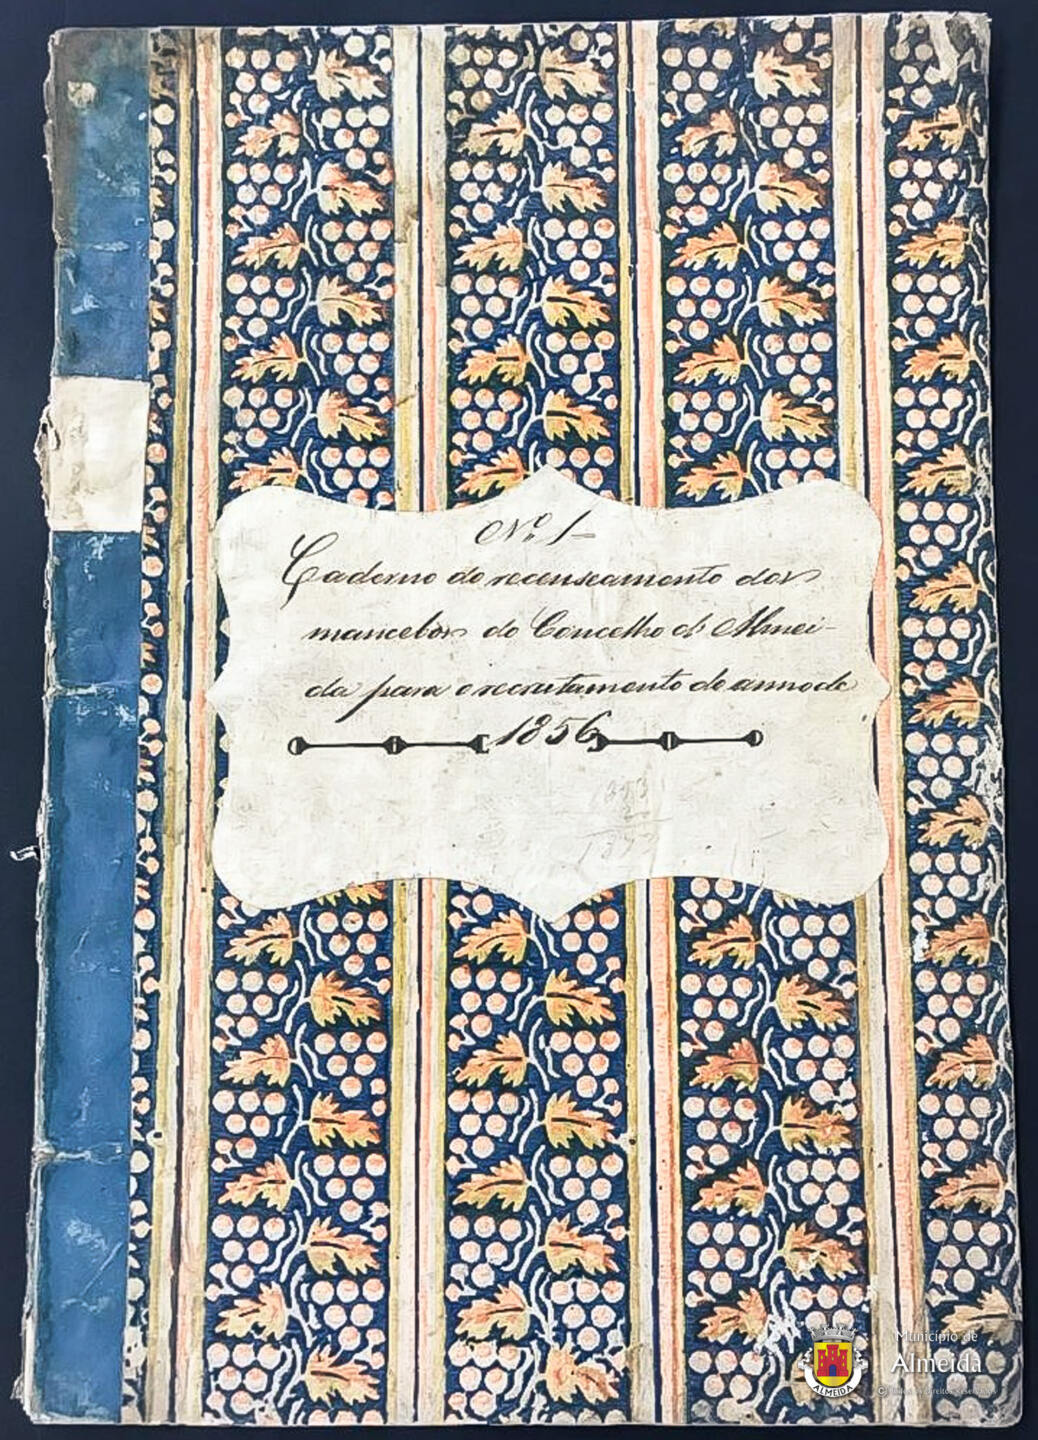 Nº 1
Caderno do recenseamento dos
mancebos do Concelho d' Almei-
da para o recrutamento do anno de
1856
Município de
Almeida
ALMEIDA